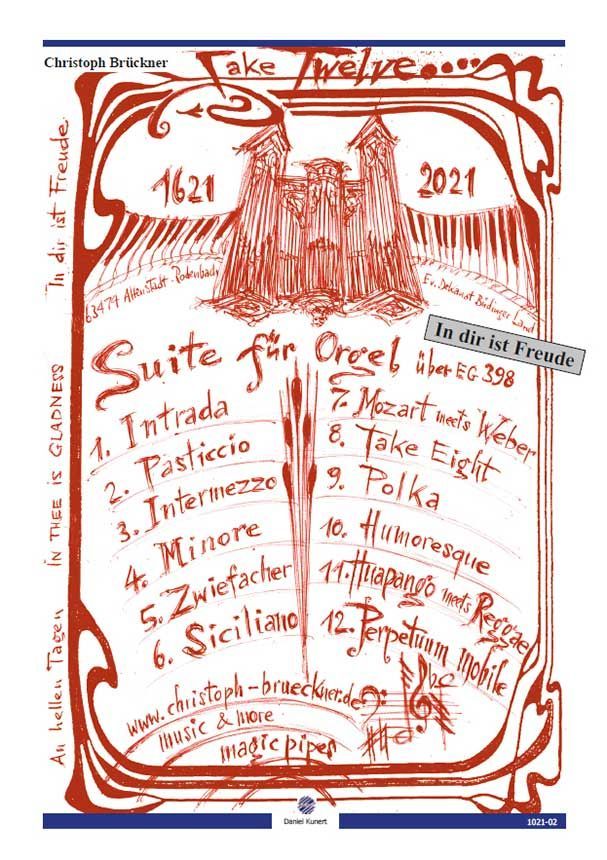 Christoph Brückner
Take Twelve....
1621
2021
63477 Altenstadt-Rodenbach
Ev. Dekanat Büdinger Land
In dir ist Freude
Suite für Orgel, über EG 398
1. Intrada
2. Pasticcio
3. Intermezzo
4. Minore
5. Zwiefacher
6. Siciliano
7. Mozart meets Weber
8. Take Eight
9. Polka
10. Humoresque
11. Huapango meets Reggae
12. Perpetuum mobile
www.christoph-brueckner.de
music & more
magic pipes
In dir ist Freude
IN THEE IS GLADNESS
An hellen Tagen
Daniel Kunert
1021-02